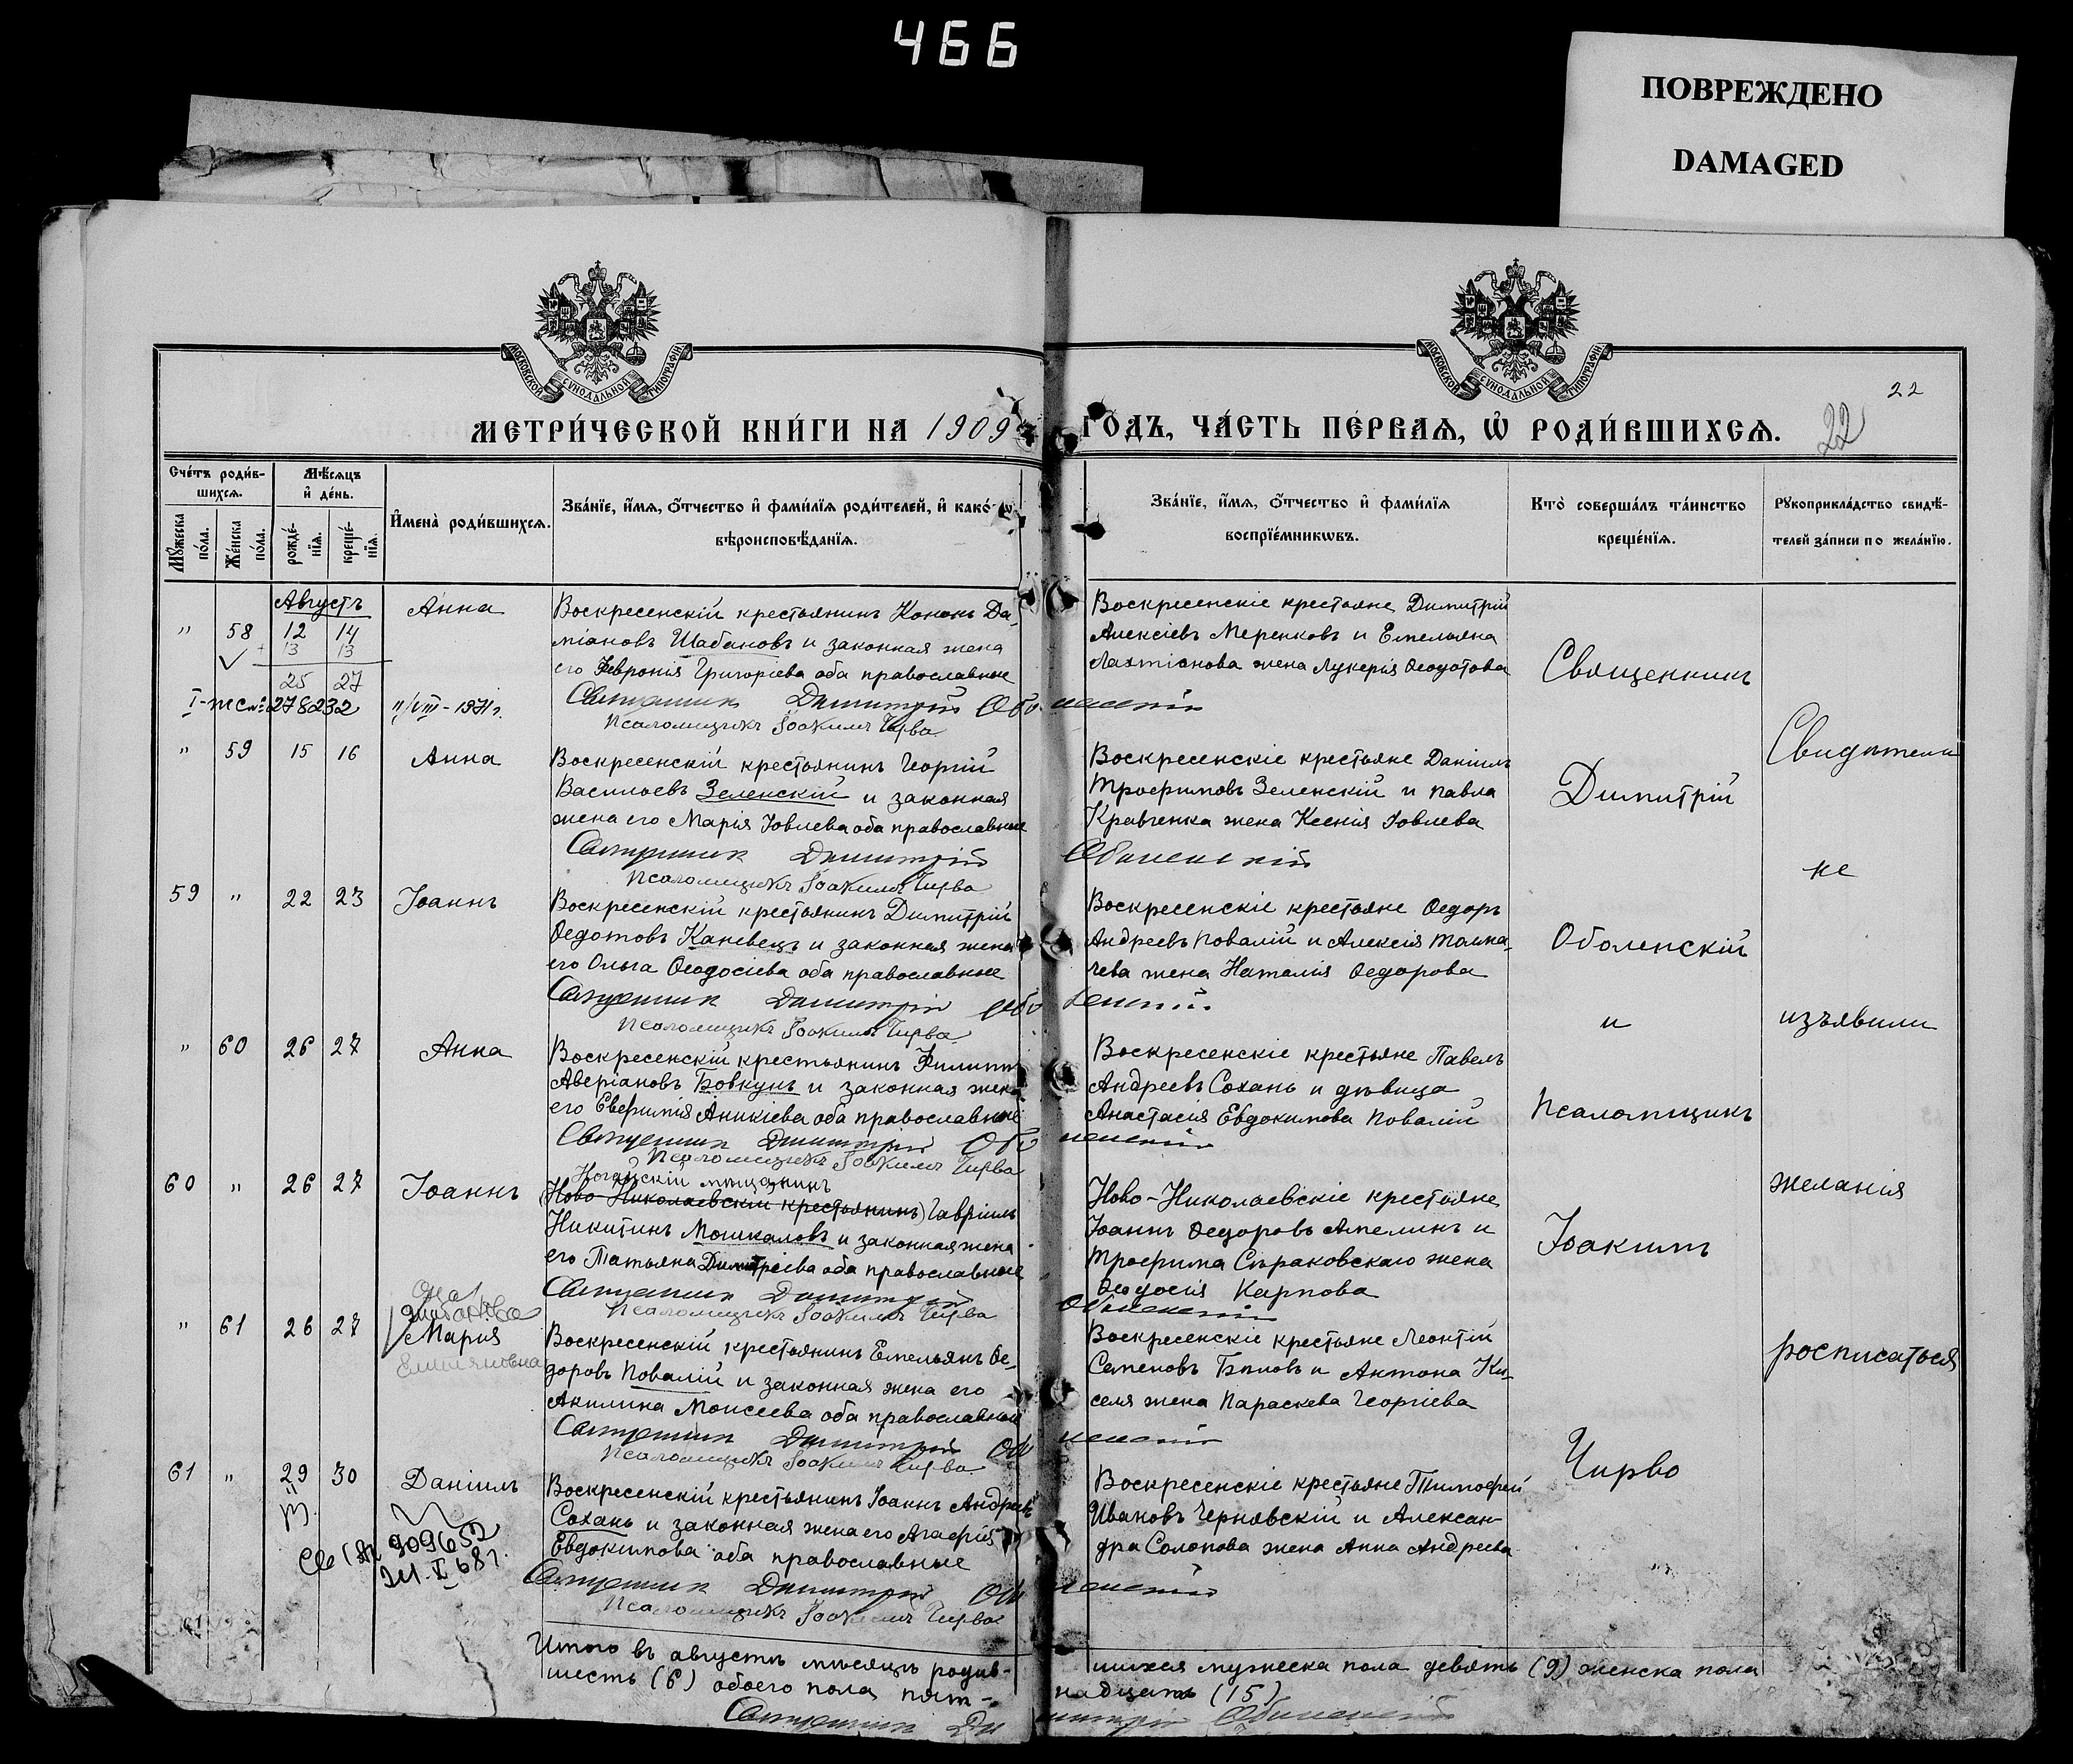 466
ПОВРЕЖДЕНО
DAMAGED
МОСКОВСКОЙ СѴНОДАЛЬНОЙ ТИПОГРАФІИ
МОСКОВСКОЙ СѴНОДАЛЬНОЙ ТИПОГРАФІИ
22
МЕТРИ́ЧЕСКОЙ КНИ́ГИ НА 1909 ГО́ДЪ, ЧА́СТЬ ПЕ́РВАѦ, Ѡ҆ РОДИ́ВШИХСѦ. 22
Сче́тъ роди́в-
шихсѧ.
Мꙋ́жеска по́ла.
Же́нска по́ла.
Мѣ́сѧцъ
и҆ де́нь.
рожде́-
нїѧ.
креще́-
нїѧ.
И҆мена̀ роди́вшихсѧ.
Зва́нїе, и҆́мѧ, ѻ҆́тчество и҆ фами́лїѧ роди́телей, и҆ како́гѡ
вѣроисповѣ́данїѧ.
Зва́нїе, и҆́мѧ, ѻ҆́тчество и҆ фами́лїѧ
воспрїе́мникѡвъ.
Кто̀ соверша́лъ та́инство
креще́нїѧ.
Рꙋкоприкла́дство свидѣ́-
телей за́писи по жела́нїю.
Августъ
" 58 12 14 Анна
13 13
25 27
278232 11/VIII-1971г.
Воскресенскій крестьянинъ Кононъ Да-
міановъ Шабановъ и законная жена
его Февронія Григоріева оба православные
Священникъ Димитрій Оболенскій
Псаломщикъ Іоакимъ Чирва
Воскресенскіе крестьяне Димитрій
Алексіевъ Меренковъ и Емельяна
Лахтіонова жена Лукерія Ѳеодотова
" 59 15 16 Анна
Воскресенскій крестьянинъ Георгій
Васильевъ Зеленскій и законная
жена его Марія Іовлева оба православные
Священникъ Димитрій Оболенскій
Псаломщикъ Іоакимъ Чирва
Воскресенскіе крестьяне Даніилъ
Трофимовъ Зеленскій и Павла
Кравченка жена Ксенія Іовлева
59 " 22 23 Іоаннъ
Воскресенскій крестьянинъ Димитрій
Ѳедотовъ Каневецъ и законная жена
его Ольга Ѳеодосіева оба православные
Священникъ Димитрій Оболенскій
Псаломщикъ Іоакимъ Чирва
Воскресенскіе крестьяне Ѳедоръ
Андреевъ Повалій и Алексія Толма-
чева жена Наталія Ѳедорова
" 60 26 27 Анна
Воскресенскій крестьянинъ Филиппъ
Аверіановъ Бовкунъ и законная жена
его Евфимія Аникіева оба православные
Священникъ Димитрій Оболенскій
Псаломщикъ Іоакимъ Чирва
Воскресенскіе крестьяне Павелъ
Андреевъ Сохань и дѣвица
Анастасія Евдокимова Повалій
60 " 26 27 Іоаннъ
Ногайскій мѣщанинъ
(Ново-Николаевскій крестьянинъ) Гавріилъ
Никитинъ Мошкаловъ и законная жена
его Татьяна Димитріева оба православные
Священникъ Димитрій Оболенскій
Псаломщикъ Іоакимъ Чирва
Ново-Николаевскіе крестьяне
Іоаннъ Ѳедоровъ Амелинъ и
Трофима Сыраковскаго жена
Ѳеодосія Карпова
" 61 26 27 Марія
Воскресенскій крестьянинъ Емельянъ Ѳе-
доровъ Повалій и законная жена его
Акилина Моисеева оба православные
Священникъ Димитрій Оболенскій
Псаломщикъ Іоакимъ Чирва
Воскресенскіе крестьяне Леонтій
Семеновъ Бѣловъ и Антона Ки-
селя жена Параскева Георгіева
61 " 29 30 Даніилъ
909652
68г.
Воскресенскій крестьянинъ Іоаннъ Андреевъ
Сохань и законная жена его Агафія
Евдокимова оба православные
Священникъ Димитрій Оболенскій
Псаломщикъ Іоакимъ Чирва
Воскресенскіе крестьяне Тимофей
Ивановъ Чернявскій и Алексан-
дра Солопова жена Анна Андреева
Священникъ
Димитрій
Оболенскій
и
Псаломщикъ
Іоакимъ
Чирво
Свидѣтели
не
изъявили
желанія
росписаться
Итого въ августѣ мѣсяцѣ родив-шихся мужеска пола девять (9) женска пола
шесть (6) обоего пола пят-надцать (15)
Священникъ Димитрій Оболенскій